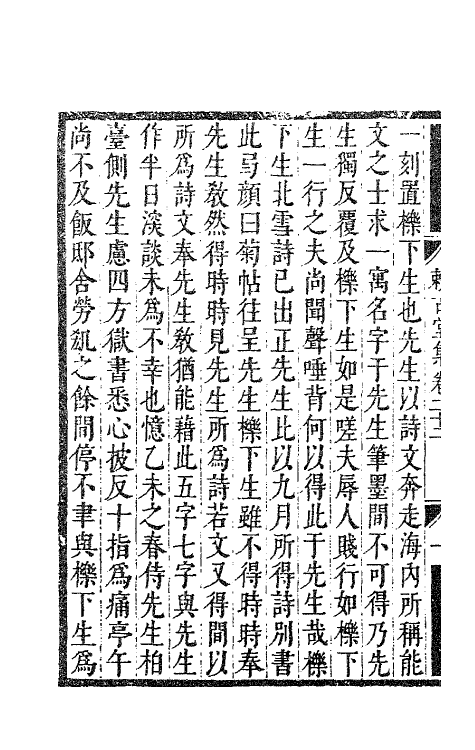 一刻置櫟下生也先生以詩文奔走海内所稱能
文之士求一寓名字于先生筆墨間不可得乃先
生獨反覆及櫟下生如是嗟夫辱人賤行如櫟下
生一行之夫尚聞聲唾背何以得此于先生哉櫟
下生北雪詩已出正先生比以九月所得詩别書
此㝵顔曰菊帖往呈先生櫟下生雖不得時時奉
先生教然得時時見先生所爲詩若文又得間以
所爲詩文奉先生教猶能藉此五字七字與先生
作半日淡談未爲不幸也憶乙未之春侍先生柏
臺側先生慮四方獄書悉心披反十指爲痛亭午
尚不及飯邸舍勞瓠之餘間停不聿與櫟下生爲
賴古堂集卷二十二
一